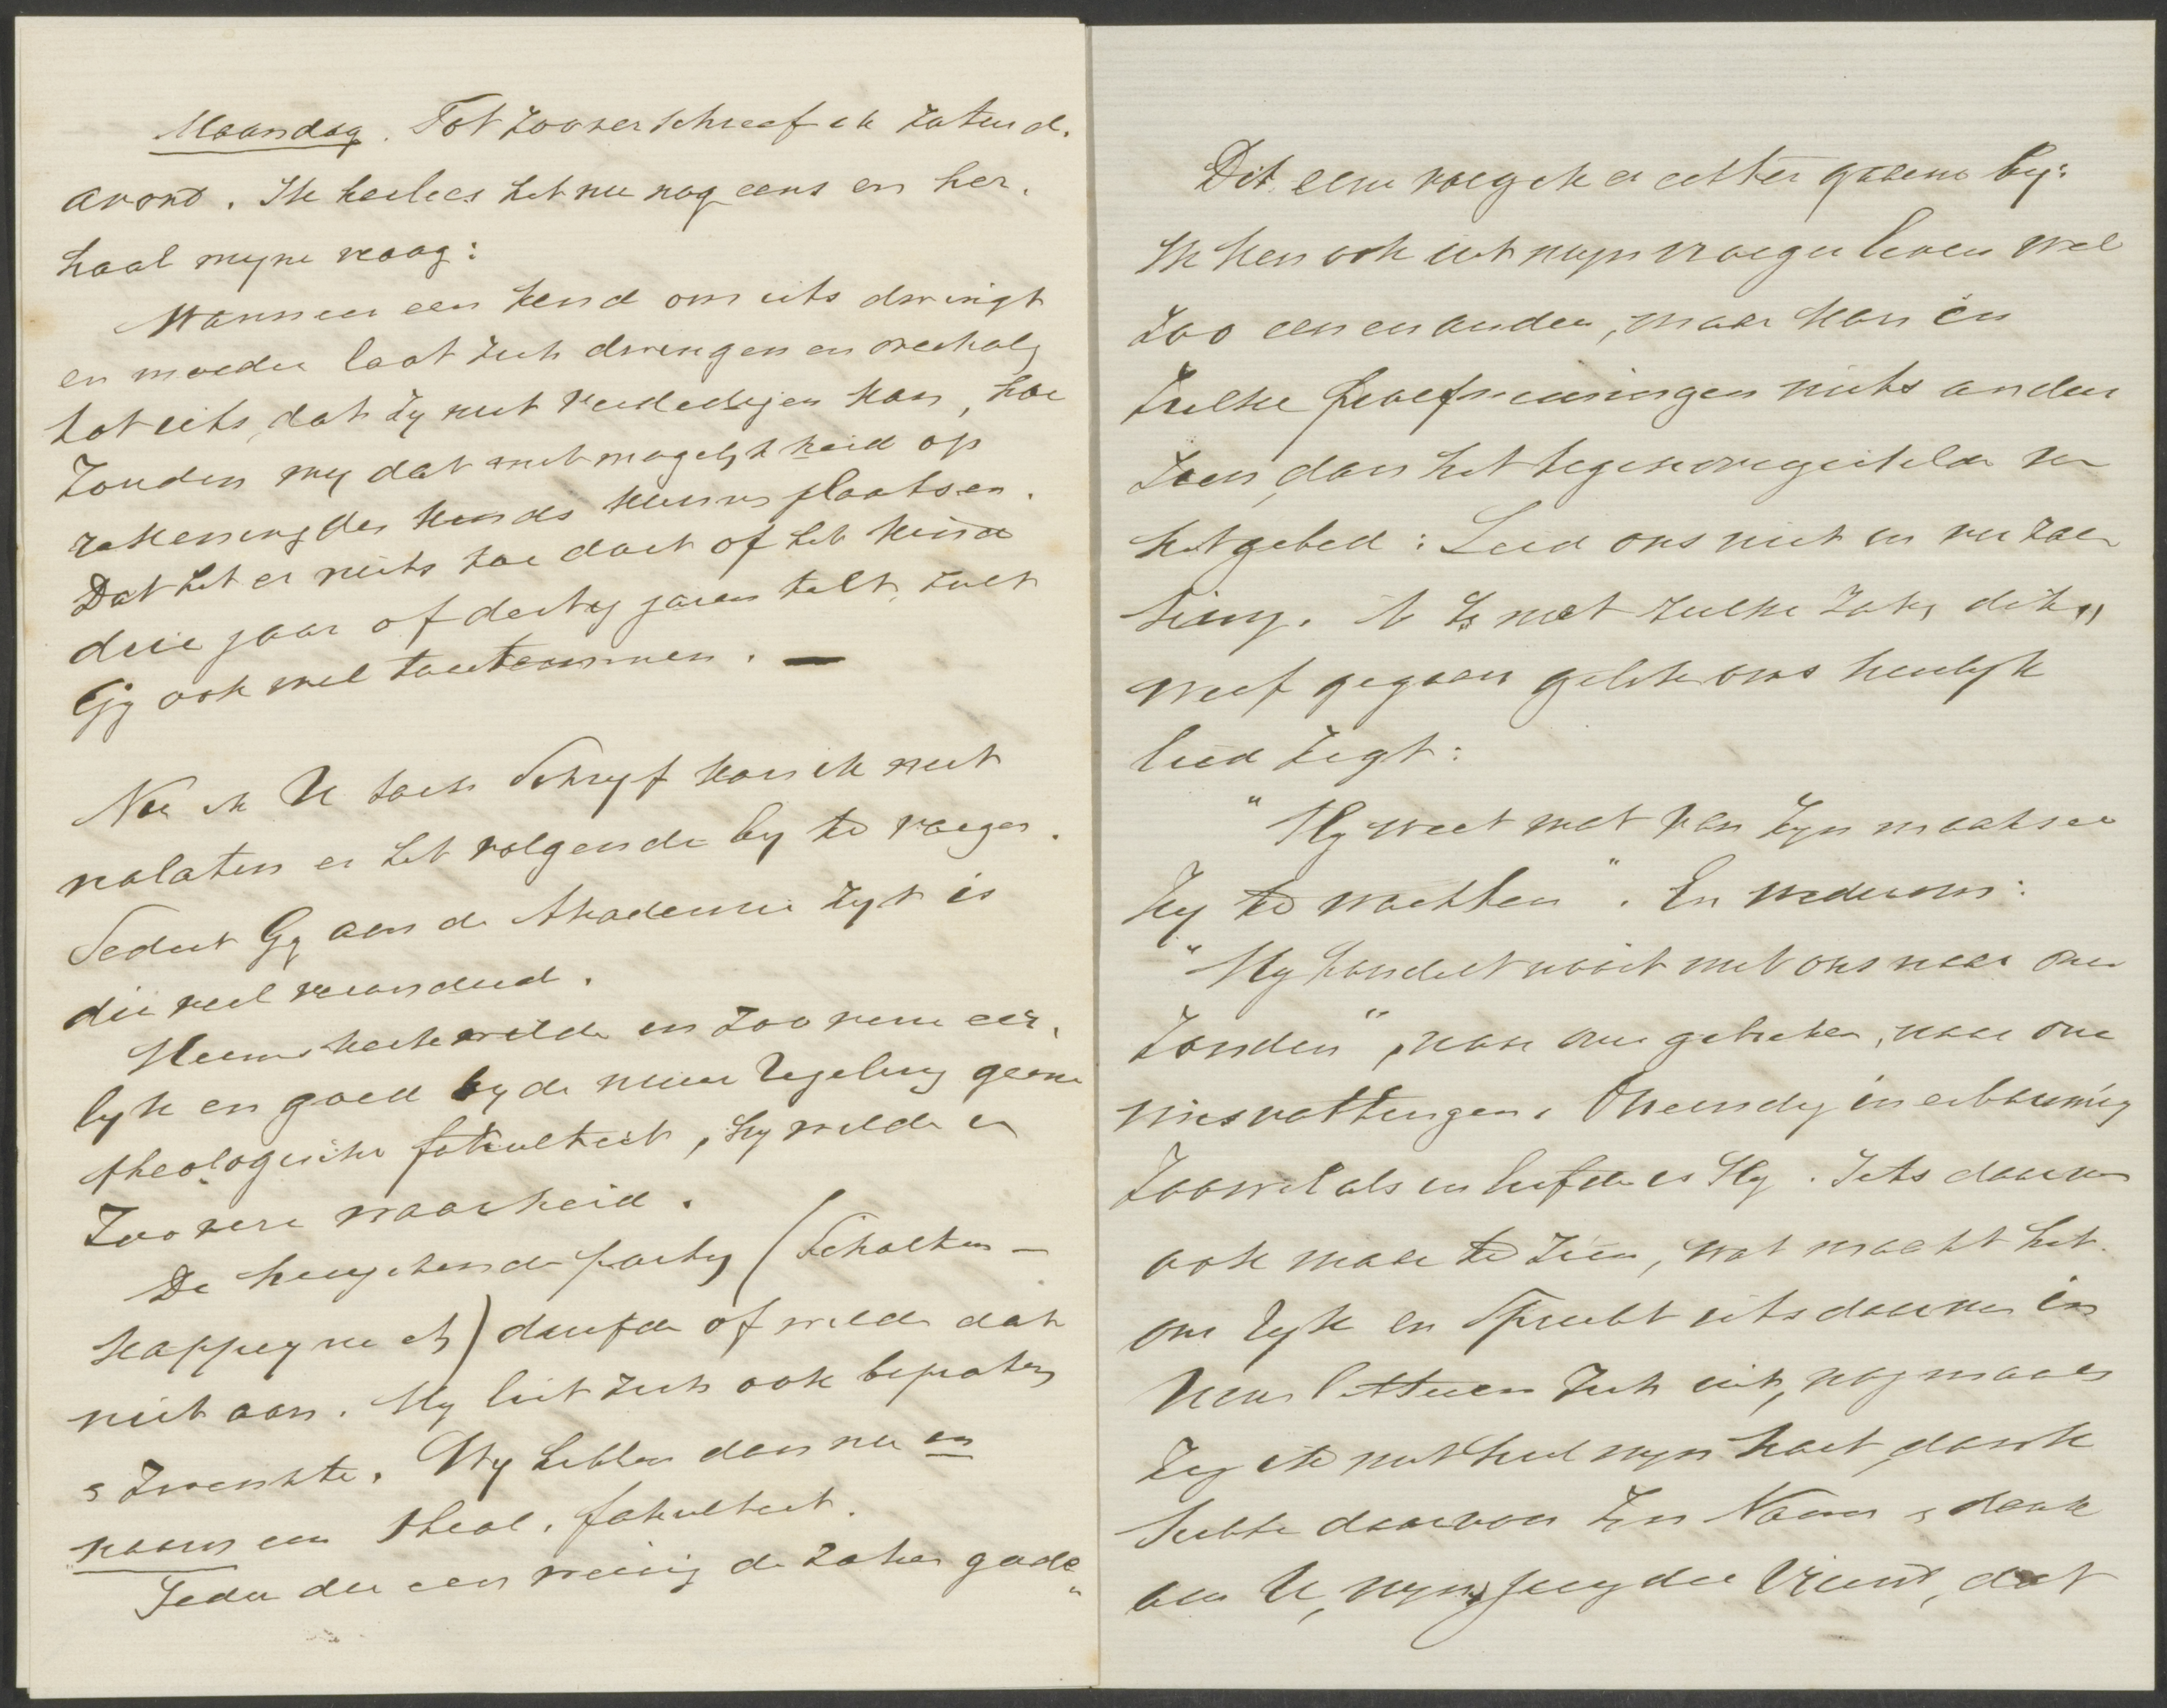 Maandag. Tot zoover schreef ik Zaturd.
avond. Ik herlees het nu nog eens en her-
haal myne vraag:
Wanneer een kind om iets dwingt
en moeder laat zich dwingen en overhalen
tot iets, dat zy niet verdedigen kan, hoe
zouden wy dat met mogelykheid op
rekening des kinds kunnen plaatsen.
Dat het er niets toe doet of het kind
drie jaar of dertig jaren telt, zult
Gy ook wel toestemmen. —
Nu ik U toch schryf kan ik niet
nalaten er het volgende by te voegen.
Sedert Gy aan de Akademie zyt is
die veel veranderd.
Heemskerk wilde in zoo verre eer-
lyk en goed by de nieuwe regeling geene
theologische fakulteit, hy wilde in
zoo verre waarheid.
De heuchende party (Scholten -
Kappeyne etc) durfde of wilde dat
niet aan. Hy liet zich ook bepraten
& zwenkte. Wy hebben dan nu in
naam een theol. fakulteit.
Ieder die een weinig de zaken gade-
Dit eene voeg ik er echter gaarne by:
Ik ken ook uit myn vroeger leven wel
zoo een en ander, maar kan in
zulke proefnemingen niets anders
zien, dan het tegenovergestelde van
het gebed: Leid ons niet in verzoe-
king. Is het met zulke zaken dikw
werf gegaan gelyk ons heerlyk
lied zegt:
"Hy weet wat van zyn maaksel
zy te wachten". En wederom:
"Hy handelt nooit met ons naar onze
zonden", naar onze gebreken, naar onze
misvattingen. Oneindig in erbarming
zoowel als in liefde is Hy. Iets daarvan
ook maar te zien, wat maakt het
ons ryk en spreekt iets daarvan in
Uwe letteren zich uit, nogmaals
zeg ik met heel myn hart, dank
hebbe daarvoor Zyn Naam & dank
aan U, myn jeugdige Vriend, dat